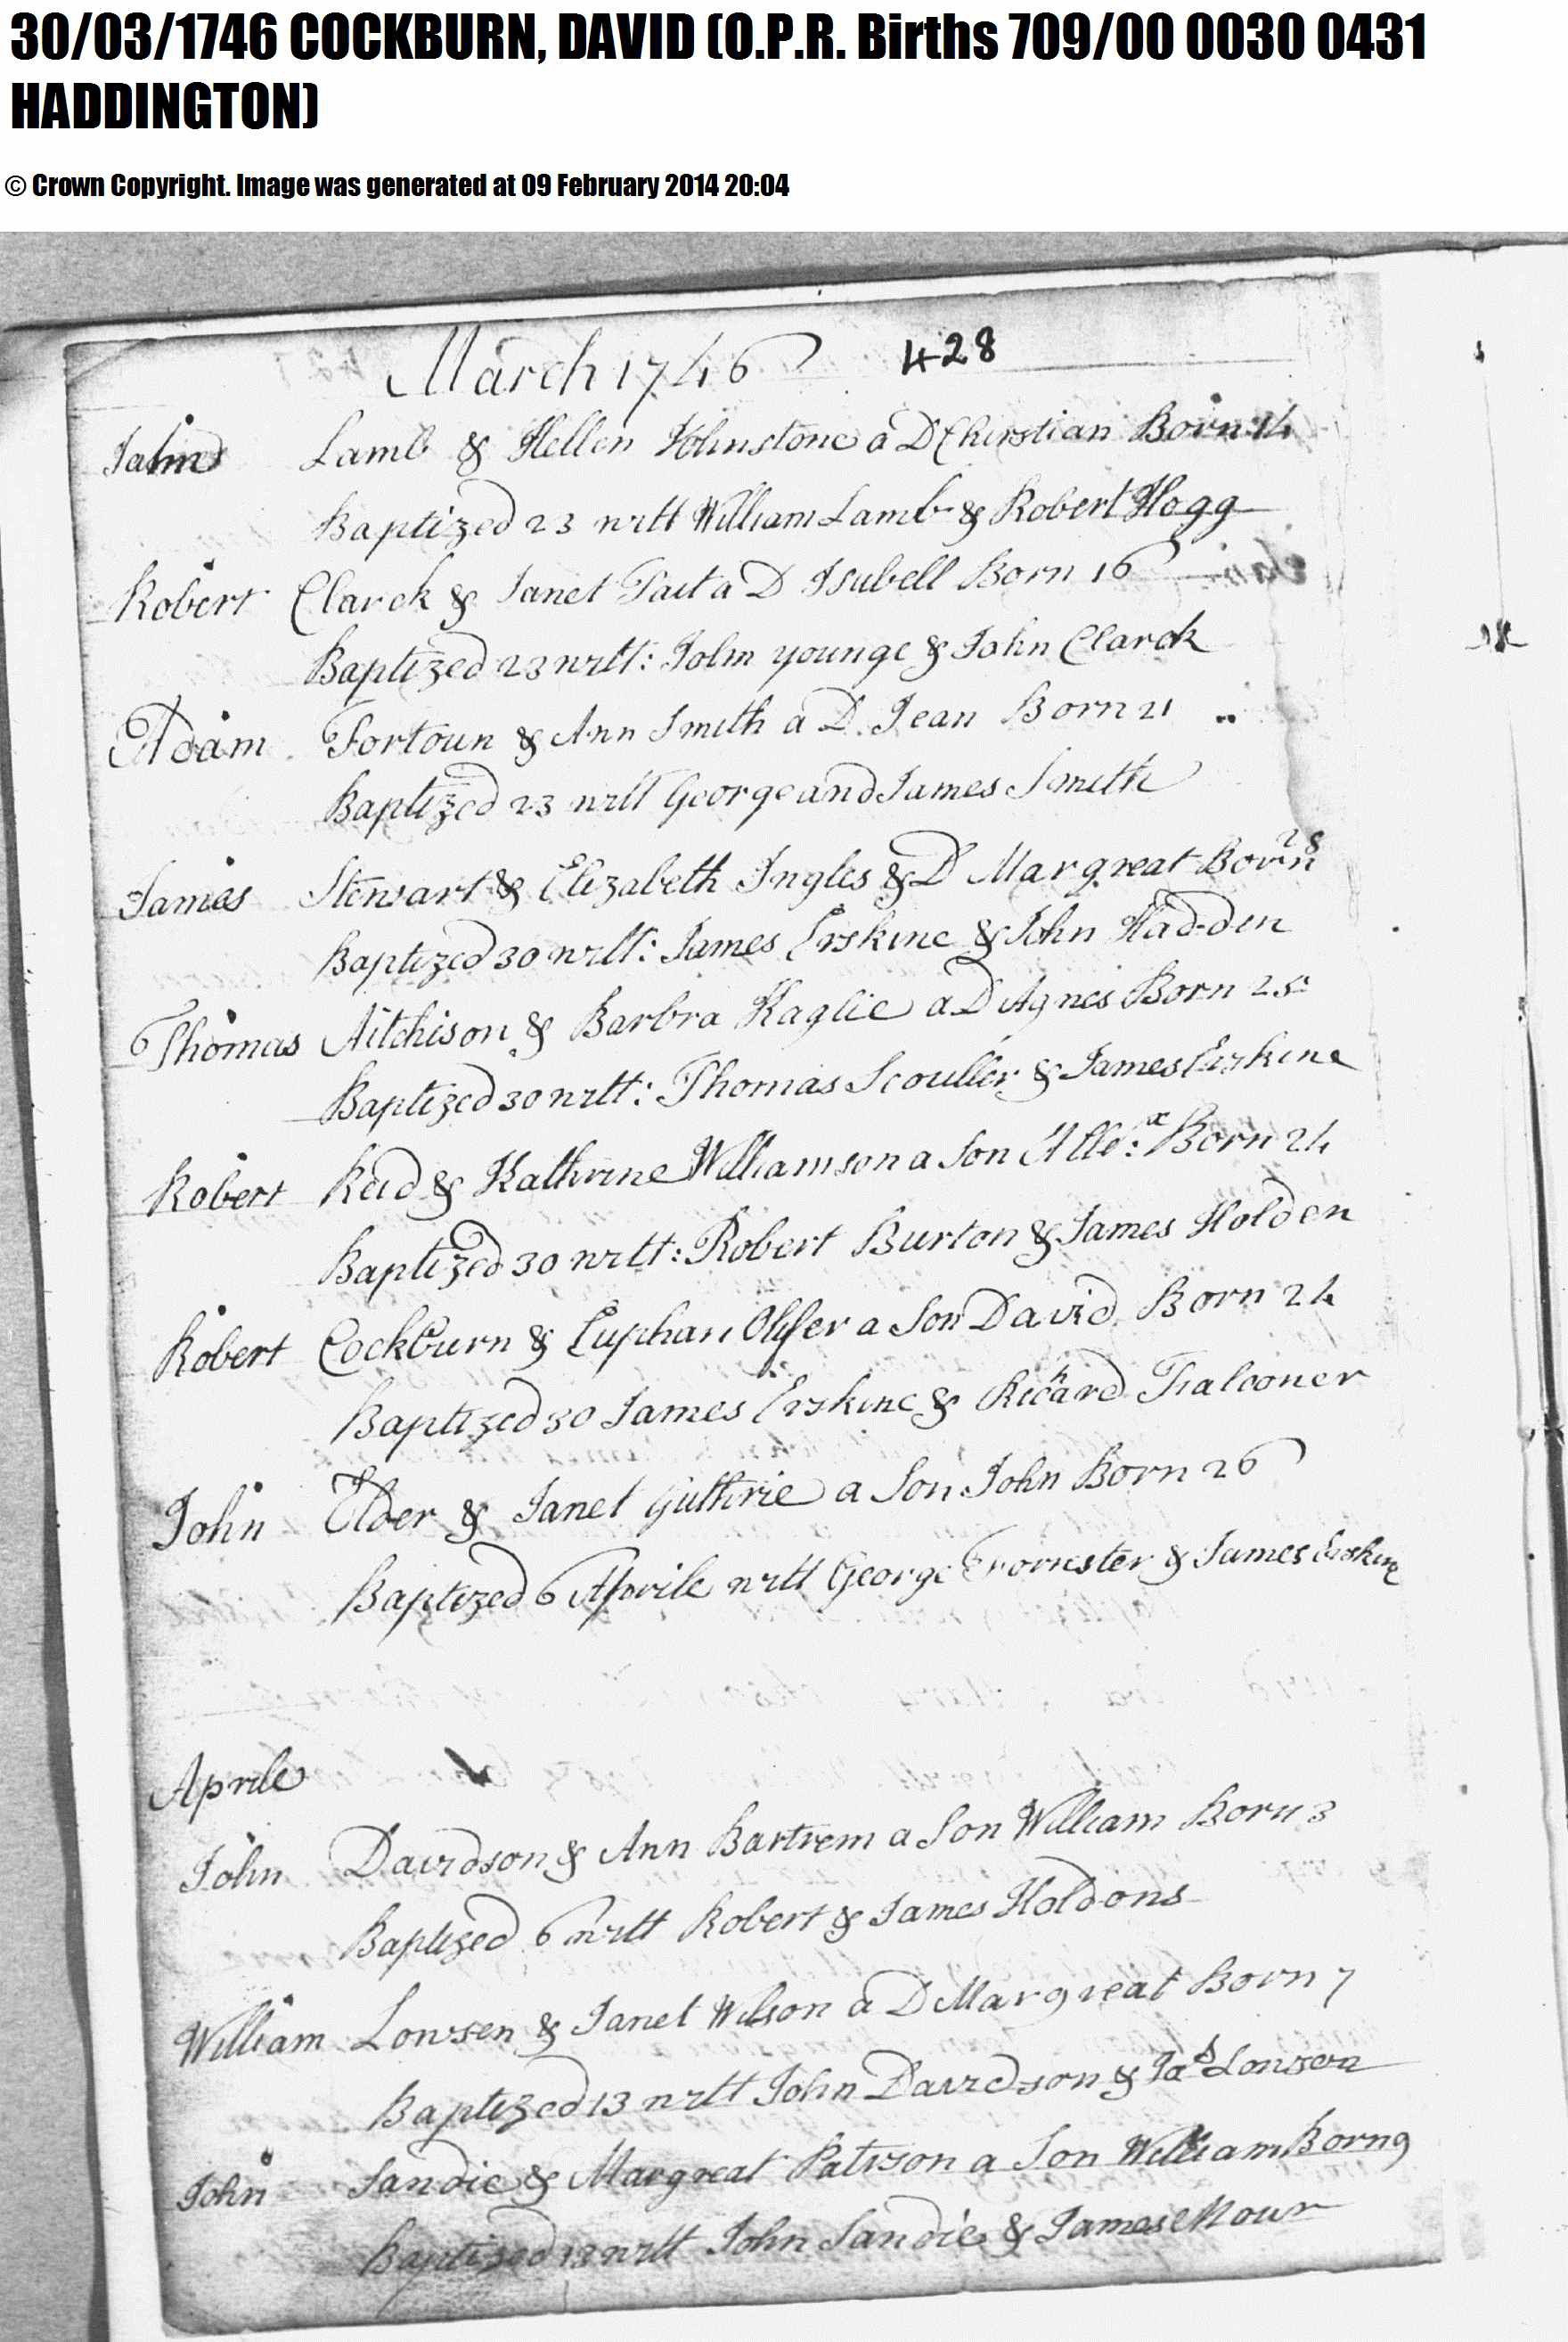 30/03/1746 COCKBURN, DAVID (O.P.R. Births 709/00 0030 0431
HADDINGTON)
© Crown Copyright. Image was generated at 09 February 2014 20:04
March 1746 428
Lamb & Hellen Johnstone a D Chirstian Born 14
Baptized 23 witt William Lamb & Robert Hogg
Robert Clarck & Janet Tait a D Isubell Born 16
Baptized 23 witt: John younge & John Clarck
Adam Fortoun & Ann Smith a D. Jean Born 21
Baptized 23 witt George and James Smith
James Stewart & Elizabeth Ingles & D Margreat Born 28
Baptized 30 witt: James Erskine & John Hadden
Thomas Aitchison & Barbra Haglie a D Agnes Born
Baptized 30 witt: Thomas Scouller & James Erskine
Robert Reid & Kathrine Williamson a Son Alle:x Born 24
Baptized 30 witt: Robert Burton & James Holden
Robert Cockburn & Euphan a Son David Born 24
Baptized 30 James Erskine & Richard Falconer
John Elder & Janet Guthrie a Son John Born 26
Baptized 6 Aprile witt George Forrester & James Erskine
Aprile
John Davidson & Ann Bartrem a Son William Born 3
Baptized 6 witt Robert & James Holdons
William Lowsen & Janet Wilson a D Margreat Born 7
Baptized 13 witt John Davidson & Jas Lowsen
John Sandie & Margreat Patison a Son William Born 9
Baptized 13 witt John Sandie & James Mour